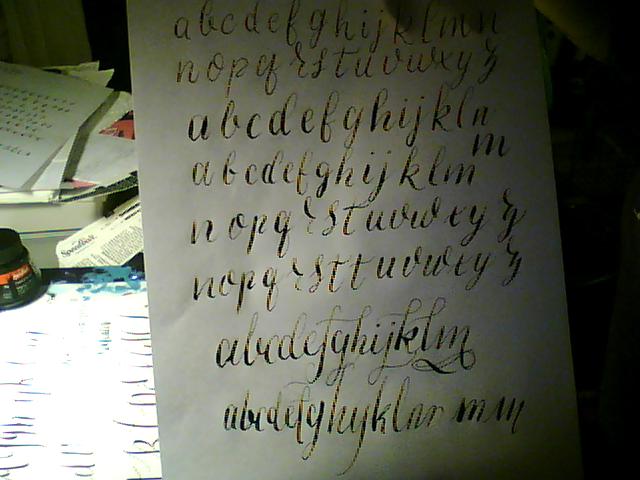 abcdefghijklmn
nopqrstuvwxyz
abcdefghijkln
m
abcdefghijklm
nopqrstuvwxyz
nopqrsttuvwxyz
abcdefghijklm
abcdefghijklmn m m
Speedball